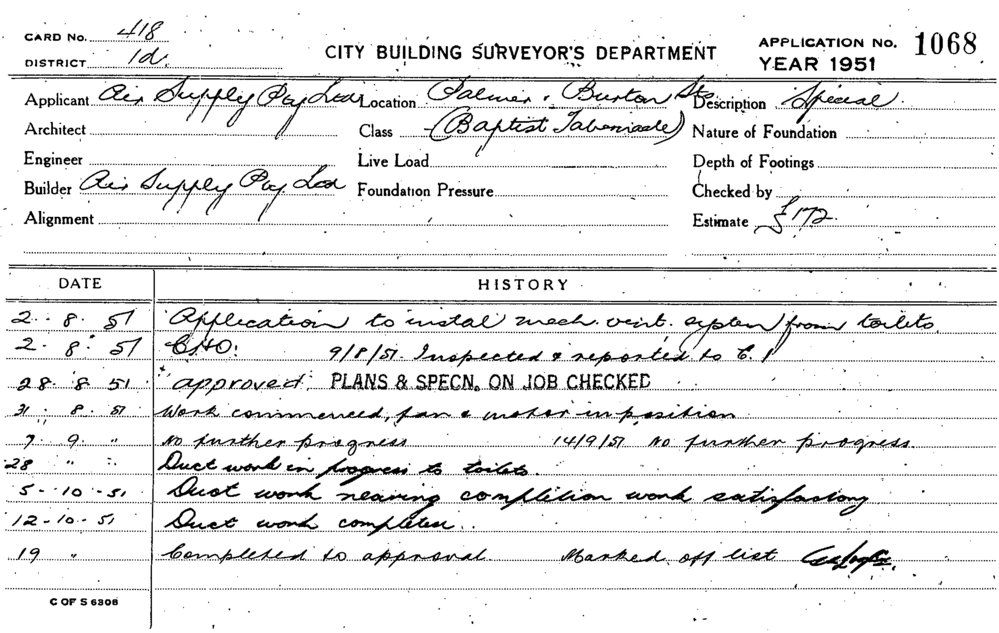 CARD No. 418
DISTRICT 1d.
CITY BUILDING SURVEYOR'S DEPARTMENT
APPLICATION No. 1068
YEAR 1951
Applicant Air Supply Pty Ltd Location Palmer & Burton Sts Description Special.
Architect Class (Baptist Tabernacle) Nature of Foundation
Engineer Live Load Depth of Footings
Builder Air Supply Pty. Ltd Foundation Pressure Checked by
Alignment Estimate £172.
DATE HISTORY
2. 8. 51 Application to instal mech. vent. system from toilets.
2. 8. 51 9/8/51. Inspected & reported to C.
28. 8. 51 approved. PLANS & SPECN. ON JOB CHECKED
31. 8. 51 Work commenced, fan & motor in position
7. 9. " No further progress 14/9/51 No further progress.
28 " " Duct work in progress to toilets.
5-10-51 Duct work nearing completion work satisfactory
12-10-51 Duct work completed.
19 " Completed to approval. Marked off list
C OF S 6306